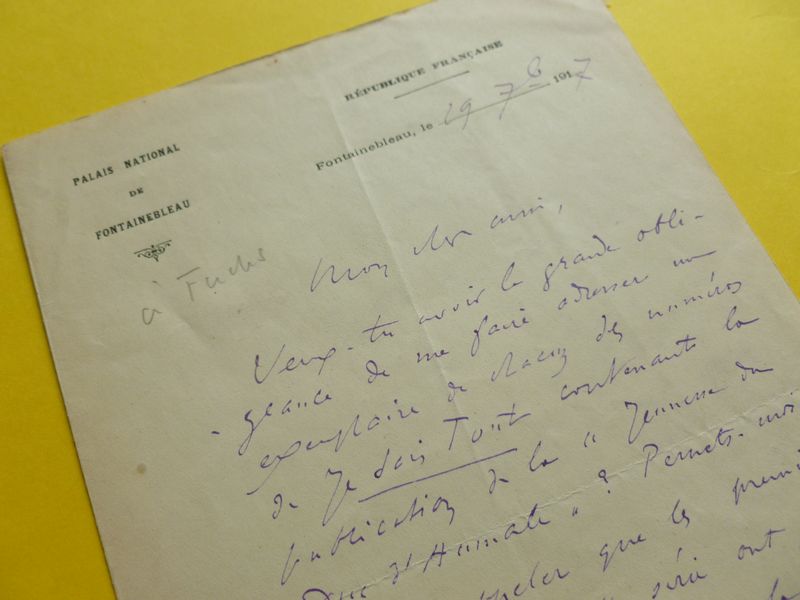 RÉPUBLIQUE FRANÇAISE
PALAIS NATIONAL
DE
FONTAINEBLEAU
Fontainebleau, le 19 7b 1917
à Fuchs
Mon cher ami,
Veux-tu avoir la grande obli-
-geance de me faire adresser un
exemplaire de chacun des numéros
de Je Sais Tout contenant la
publication de la "Jeunesse du
Duc d'Aumale" ? Permets-moi
que les premi
série ont